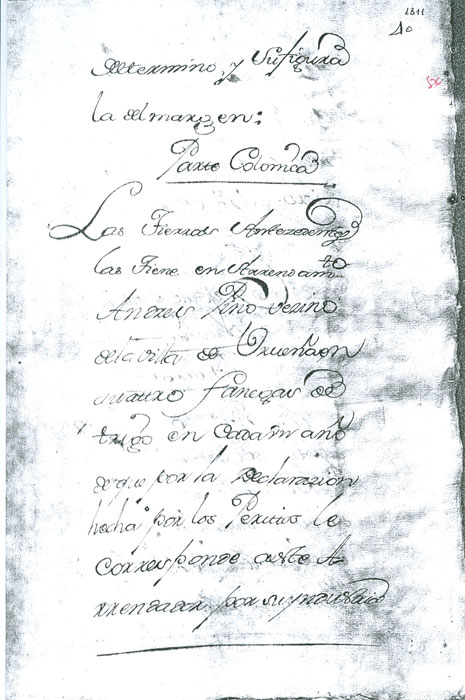 1811
40
deltermino, y Sufigura
la del margen:
Parte Colonica
Las Tierras Antezedentes
las tiene en Arrendam.to
Andres Pino vezino
de la villa de Urueña en
quattro fanegas de
trigo en cada un año
de que por la Declarazion
hecha por los Peritos le
corresponde a este A
rrendador por su yndustria